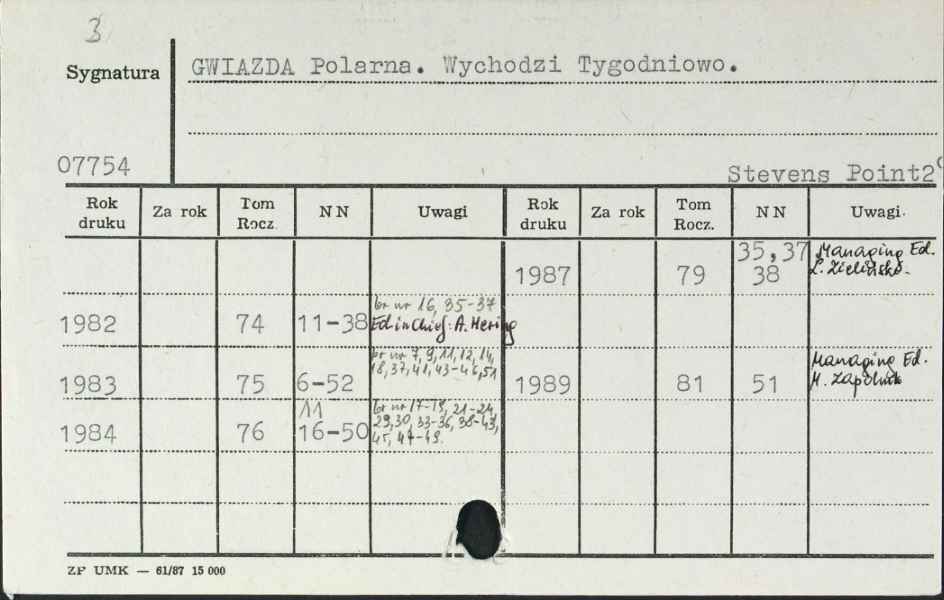 3
Sygnatura
GWIAZDA Polarna. Wychodzi Tygodniowo.
07754
Stevens Point2
Rok druku Za rok Tom Rocz. NN Uwagi Rok druku Za rok Tom Rocz. NN Uwagi.
1987 79 35,37 38 Managing Ed. L. Zieliński.
1982 74 11-38 br nr 16, 35-37 Ed in Chief: A. Hering
1983 75 6-52 br nr 7, 9, 11, 12, 14, 18, 37, 41, 43-46, 51 1989 81 51 Managing Ed. M. Zapolnik
1984 76 11 16-50 br nr 17-18, 21-24, 29, 30, 33-36, 38-43, 45, 47-49.
ZP UMK — 61/87 15 000